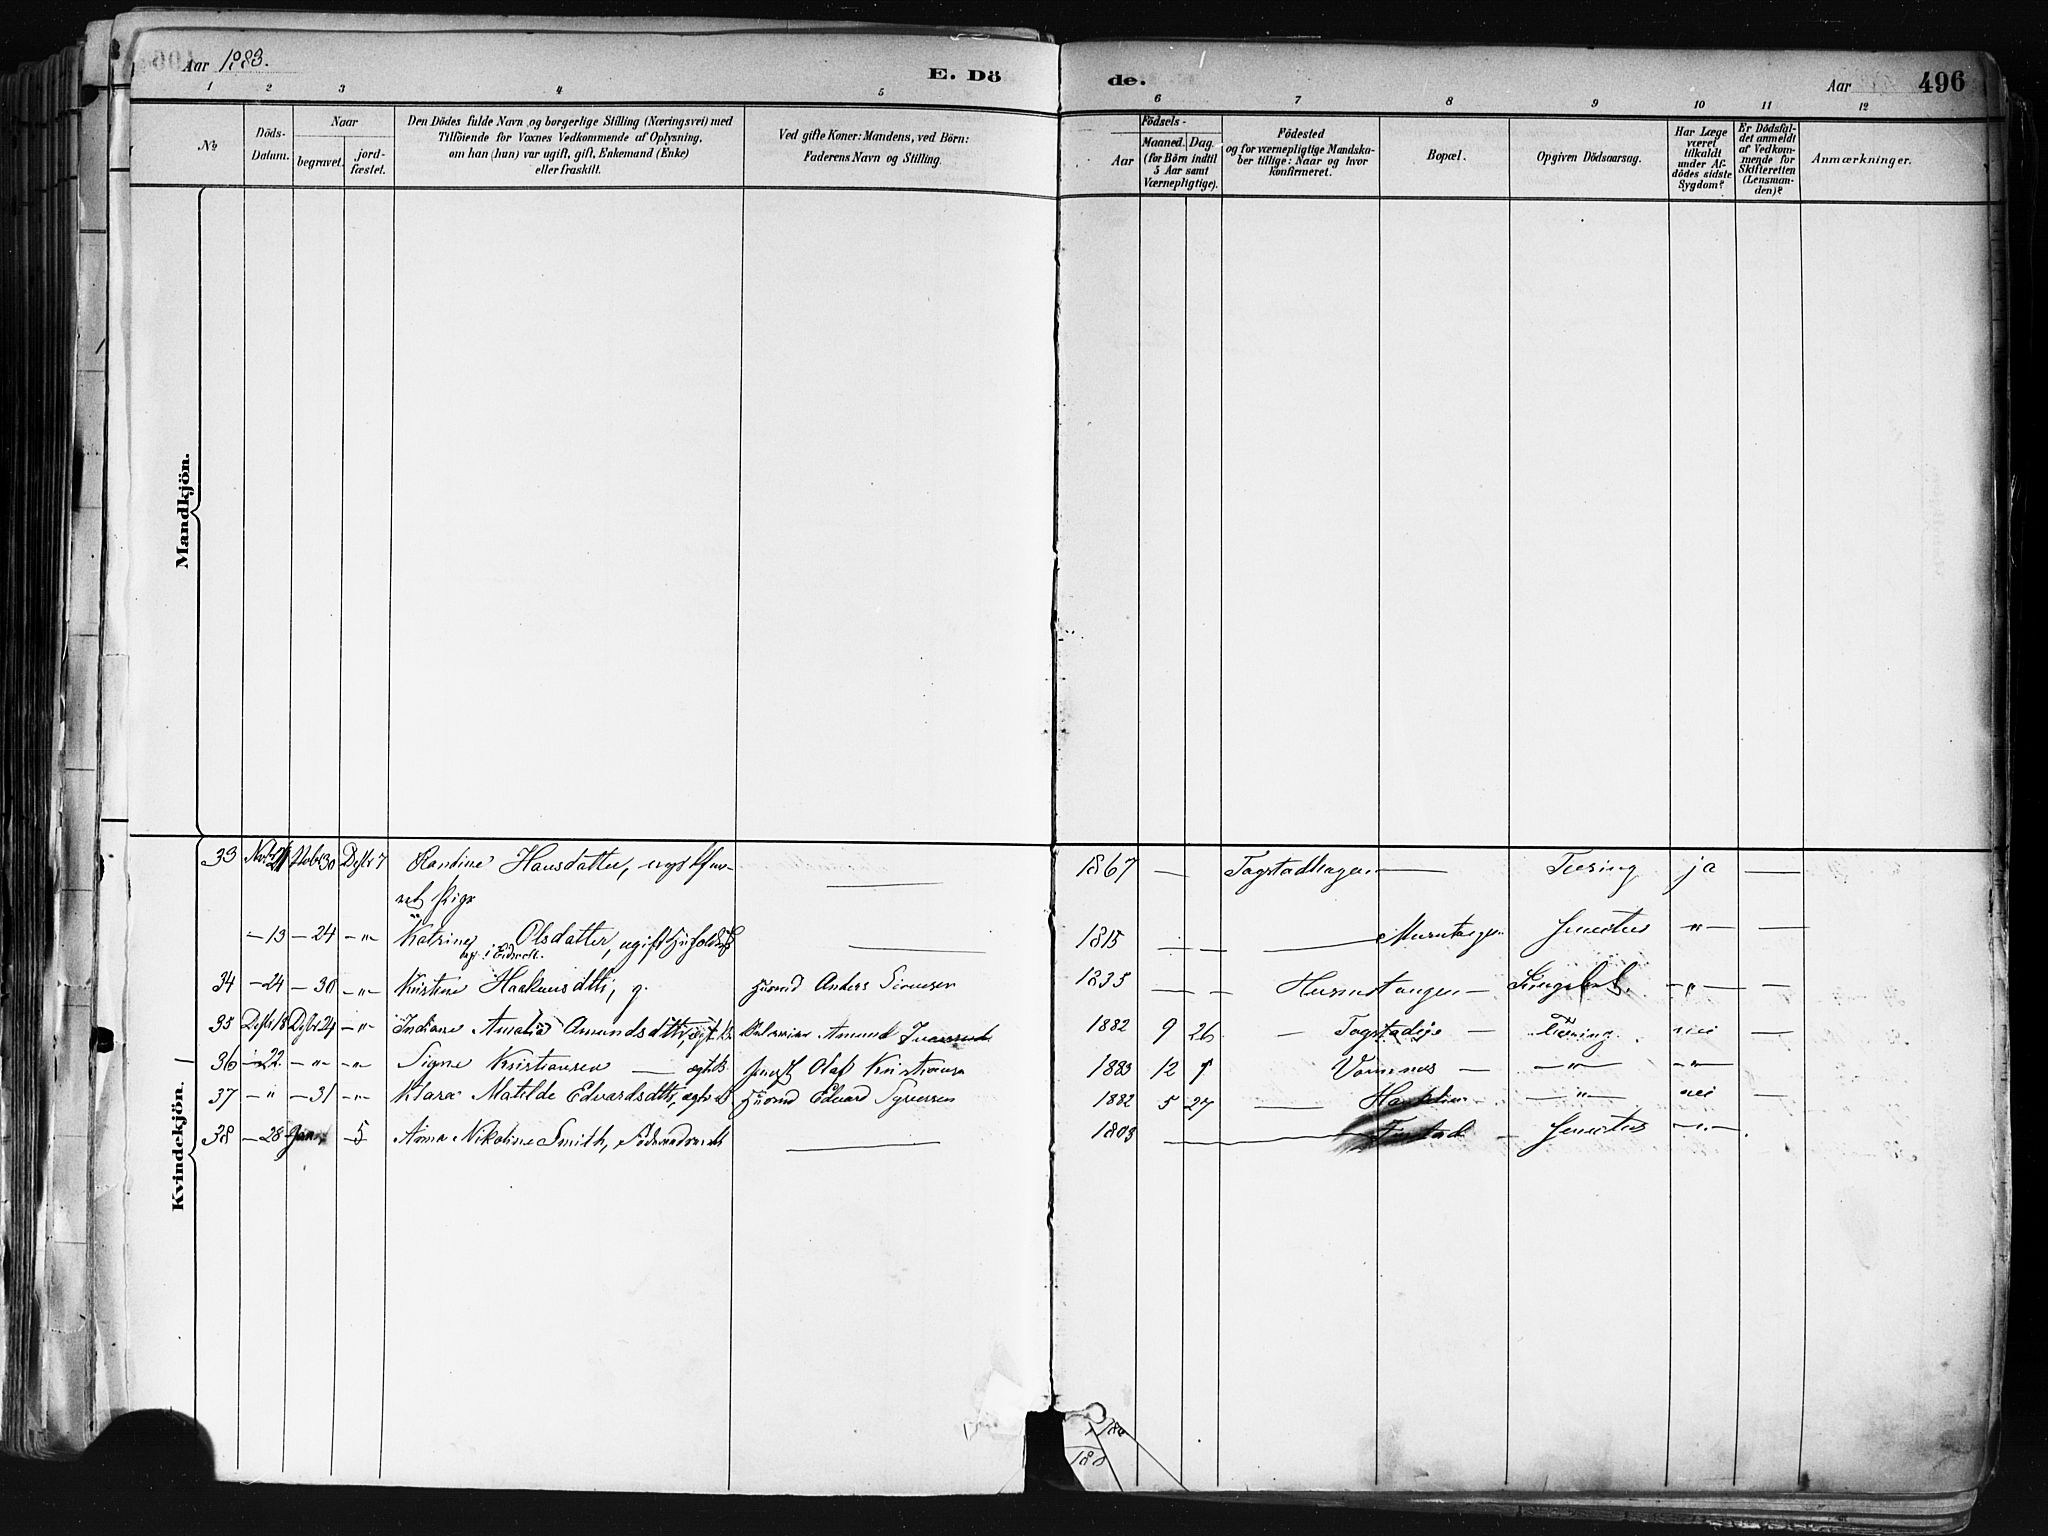 Aar 1883.
E. Döde.
Aar
496
1 2 3 4 5 6 7 8 9 10 11 12
No
Döds-Datum.
Naar
begravet.
jord-fæstet.
Den Dödes fulde Navn og borgerlige Stilling (Næringsvei) med
Tilföiende for Voxnes Vedkommende af Oplysning,
om han (hun) var ugift, gift, Enkemand (Enke)
eller fraskilt.
Ved gifte Koner: Mandens, ved Börn:
Faderens Navn og Stilling.
Födsels-
Aar
Maaned. Dag.
(for Börn indtil
5 Aar samt
Værnepligtige).
Födested
og for værnepligtige Mandska-
ber tillige: Naar og hvor
konfirmeret.
Bopæl.
Opgiven Dödsaarsag.
Har Læge
været
tilkaldt
under Af-
dödes sidste
Sygdom?
Er Dödsfal-
det anmeldt
af Vedkom-
mende for
Skifteretten
(Lensman-
den)?
Anmærkninger.
Mandkjön.
Kvindekjön.
33 Novbr 21 Novbr 30 Decbr 7 Randine Hansdatter, — 1867 — Togstadhagen — Tæring ja —
pige
— 13 — 24 — " — Katrine Olsdatter, ugift — 1815 — — — Senectus " —
i Eidsvold.
34 — 24 — 30 — " — Kristine Haakensdtr, g. Husmd Anders Simensen 1835 — — Husmd — " — —
35 Decbr 18 Decbr 24 — " — Indiane Amalia Amundsdtr, ægte B. Amund 1882 9 26 — — Tæring nei —
36 — 22 — " — — " — Signe Kristiansen — ægte B. Olaf Kristiansen 1883 12 — — " — — " —
37 — " — 31 — " — Klara Matilde Edvardsdtr, ægte B. Husmd Edvard Syversen 1882 5 27 — — " — nei —
38 — 28 Jan. — 5 Anna Nikoline Smith, — 1803 — — Senectus — " — —